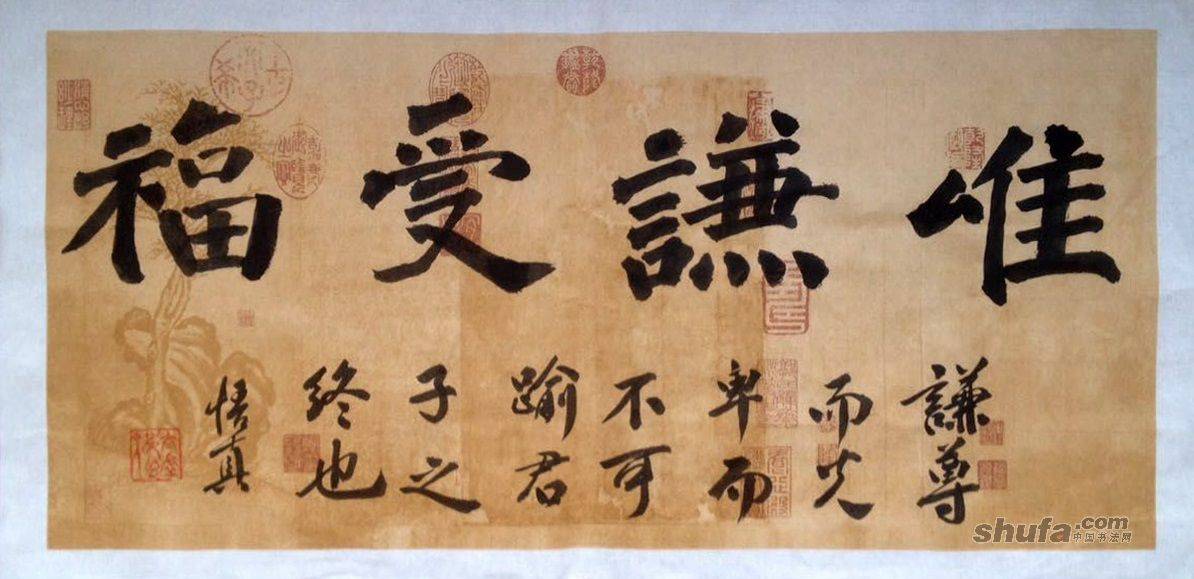 唯謙受福
謙尊
而光
卑而
不可
踰君
子之
終也
悟真
shufa.com
中国书法网